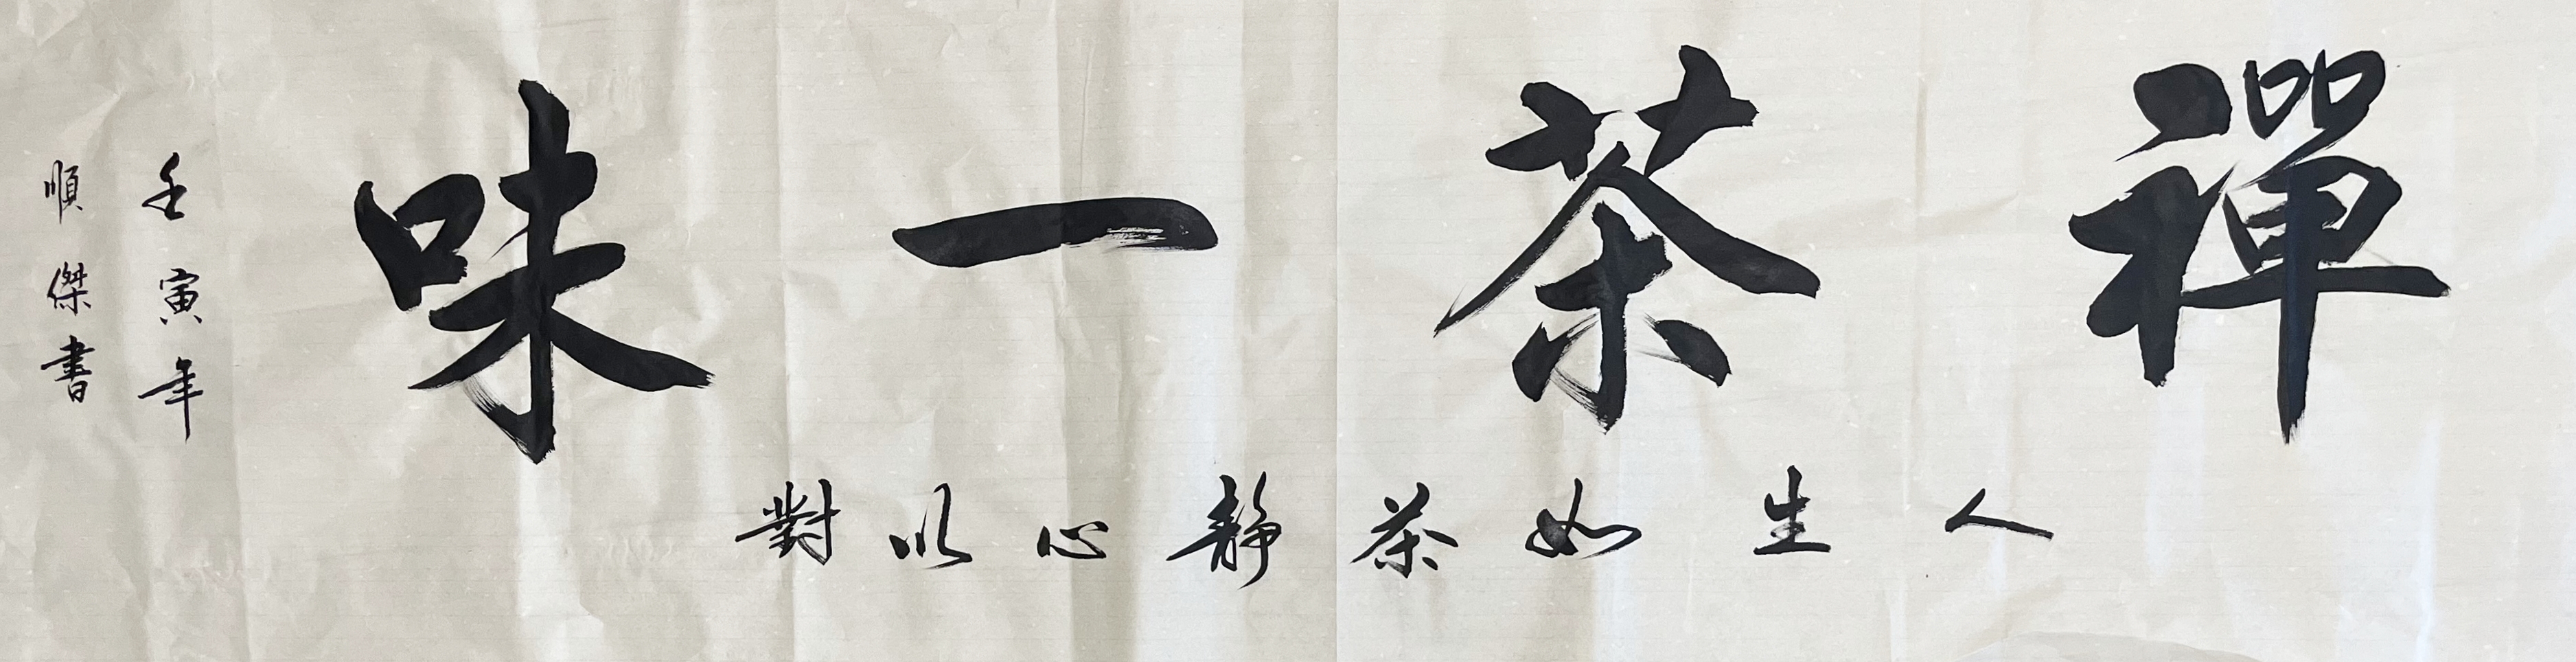 禪茶一味
人生如茶靜心以對
壬寅年
順傑書